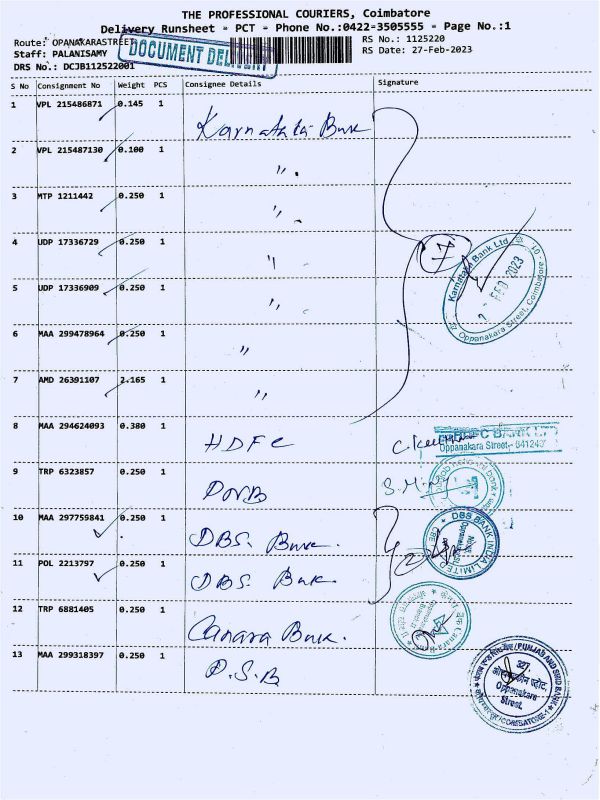 THE PROFESSIONAL COURIERS, Coimbatore
Delivery Runsheet - PCT - Phone No.:0422-3505555 - Page No.:1
Route: OPANAKARASTREET
RS No.: 1125220
Staff: PALANISAMY
RS Date: 27-Feb-2023
DRS No.: DCJB112522001
DOCUMENT DELIVERY
S No Consignment No Weight PCS Consignee Details Signature
1 VPL 215486871 0.145 1 Karnataka Bank
2 VPL 215487130 0.100 1 "
3 MTP 1211442 0.250 1 "
4 UDP 17336729 0.250 1 "
7
Karnataka Bank Ltd.
FEB 2023
Oppanakara Street, Coimbatore
5 UDP 17336909 0.250 1 "
6 MAA 299478964 0.250 1 "
7 AMD 26391107 2.165 1 "
8 MAA 294624093 0.380 1 HDFC
Oppanakara Street,
9 TRP 6323857 0.250 1
10 MAA 297759841 0.250 1 DBS. Bank.
DBS BANK INDIA LIMITED
11 POL 2213797 0.250 1 DBS. Bank.
12 TRP 6881405 0.250 1 Canara Bank.
13 MAA 299318397 0.250 1 P.S.B
PUNJAB AND SIND BANK
327,
Oppanakara
Street
COIMBATORE-1